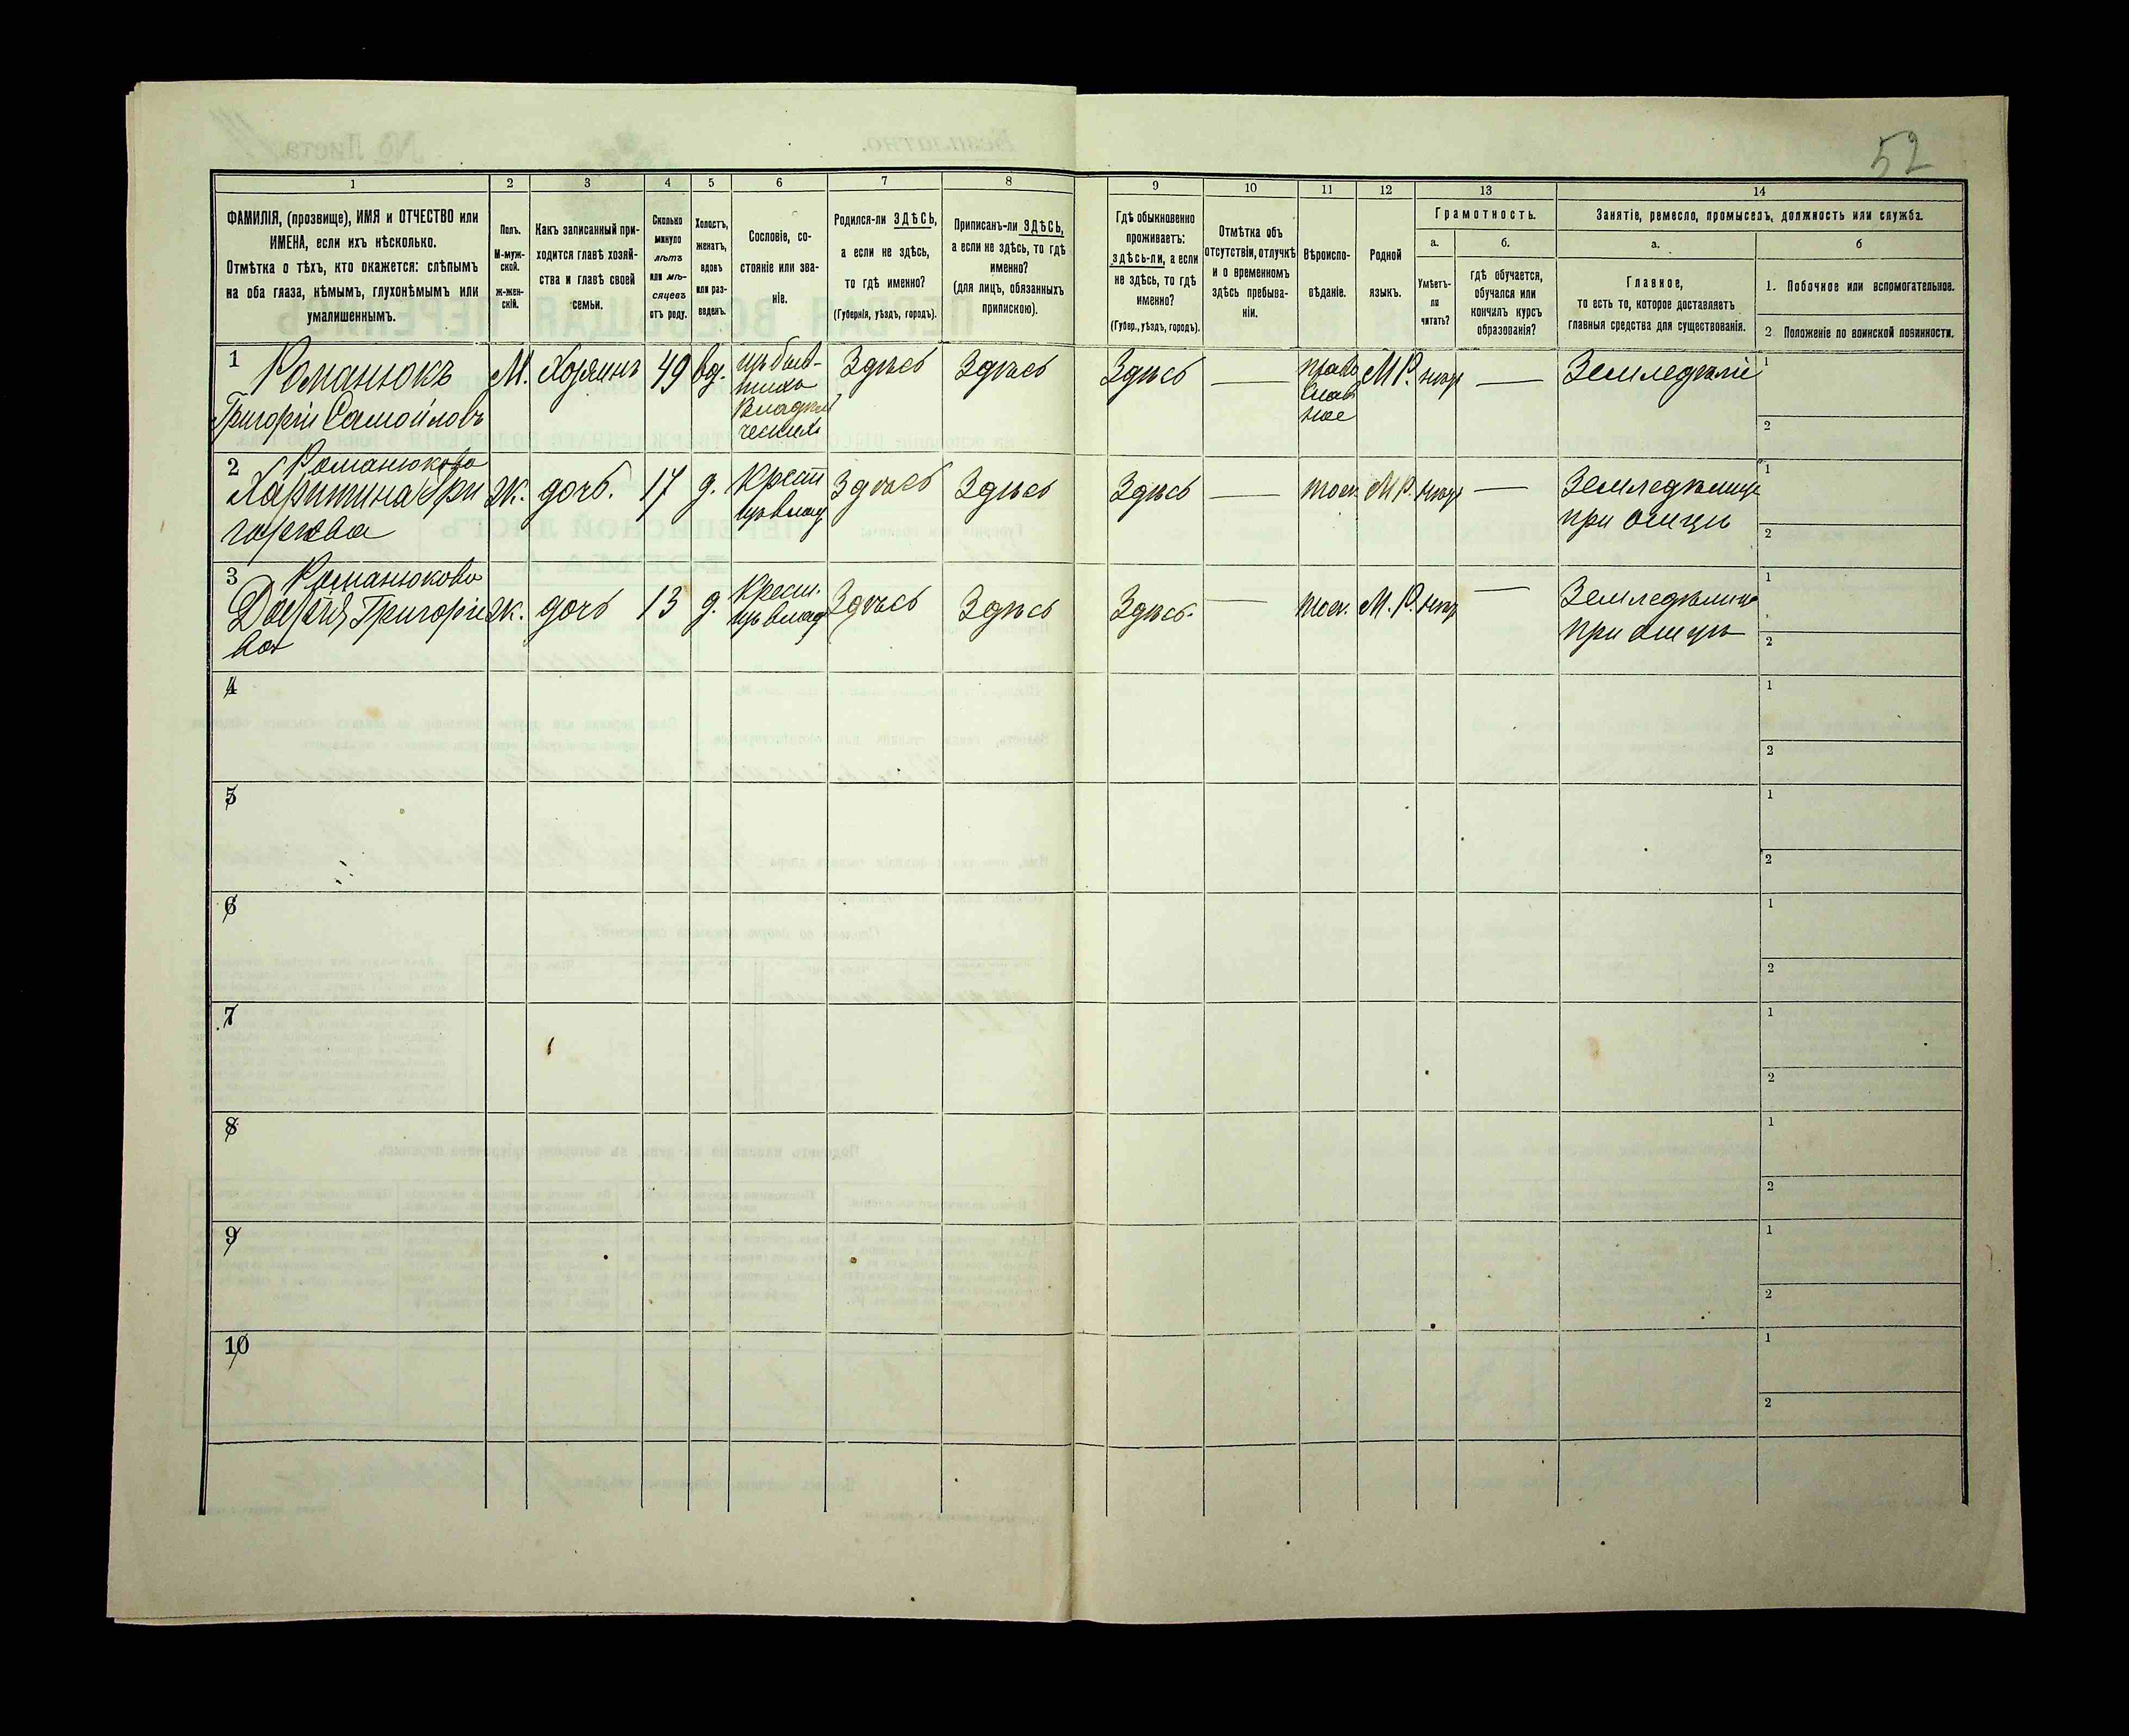 52
1 2 3 4 5 6 7 8 9 10 11 12 13 14
ФАМИЛІЯ, (прозвище), ИМЯ и ОТЧЕСТВО или
ИМЕНА, если ихъ нѣсколько.
Отмѣтка о тѣхъ, кто окажется: слѣпымъ
на оба глаза, нѣмымъ, глухонѣмымъ или
умалишеннымъ.
Полъ.
М-муж-
ской.
ж-жен-
скій.
Какъ записанный при-
ходится главѣ хозяй-
ства и главѣ своей
семьи.
Сколько
минуло
лѣтъ
или мѣ-
сяцевъ
отъ роду.
Холостъ,
женатъ,
вдовъ
или раз-
веденъ.
Сословіе, со-
стояніе или зва-
ніе.
Родился-ли ЗДѢСЬ,
а если не здѣсь,
то гдѣ именно?
(Губернія, уѣздъ, городъ).
Приписанъ-ли ЗДѢСЬ,
а если не здѣсь, то гдѣ
именно?
(для лицъ, обязанныхъ
припискою).
Гдѣ обыкновенно
проживаетъ:
здѣсь-ли, а если
не здѣсь, то гдѣ
именно?
(Губер., уѣздъ, городъ).
Отмѣтка объ
отсутствіи, отлучкѣ
и о временномъ
здѣсь пребыва-
ніи.
Вѣроиспо-
вѣданіе.
Родной
языкъ.
Грамотность.
а.
Умѣетъ-
ли
читать?
б.
гдѣ обучается,
обучался или
кончилъ курсъ
образованія?
Занятіе, ремесло, промыселъ, должность или служба.
а.
Главное,
то есть то, которое доставляетъ
главныя средства для существованія.
б
1. Побочное или вспомогательное.
2 Положеніе по воинской повинности.
1 Романюкъ
Григорій Самойловъ
М. Хозяинъ 49 вд.
Здѣсь Здѣсь Здѣсь —
право
слав
ное
М Р. — Земледѣліе
1
2
2 Романюкова
Харитина Гри
горьева
Ж. дочь. 17 д. Крест
Здѣсь Здѣсь Здѣсь — тоже М Р. —
при отцѣ
1
2
3 Романюкова
Григоріе
ва
Ж. дочь 13 д. Крест.
Здѣсь Здѣсь Здѣсь. — М. Р. —
при отцѣ
1
2
4
1
2
5
1
2
6
1
2
7
1
2
8
1
2
9
1
2
10
1
2